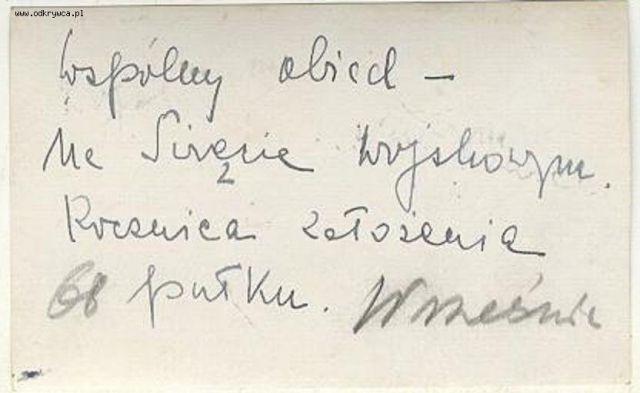 www.odkrywca.pl
Wspólny obiad –
Na wojskowym.
Rocznica założenia
68 pułku. Września